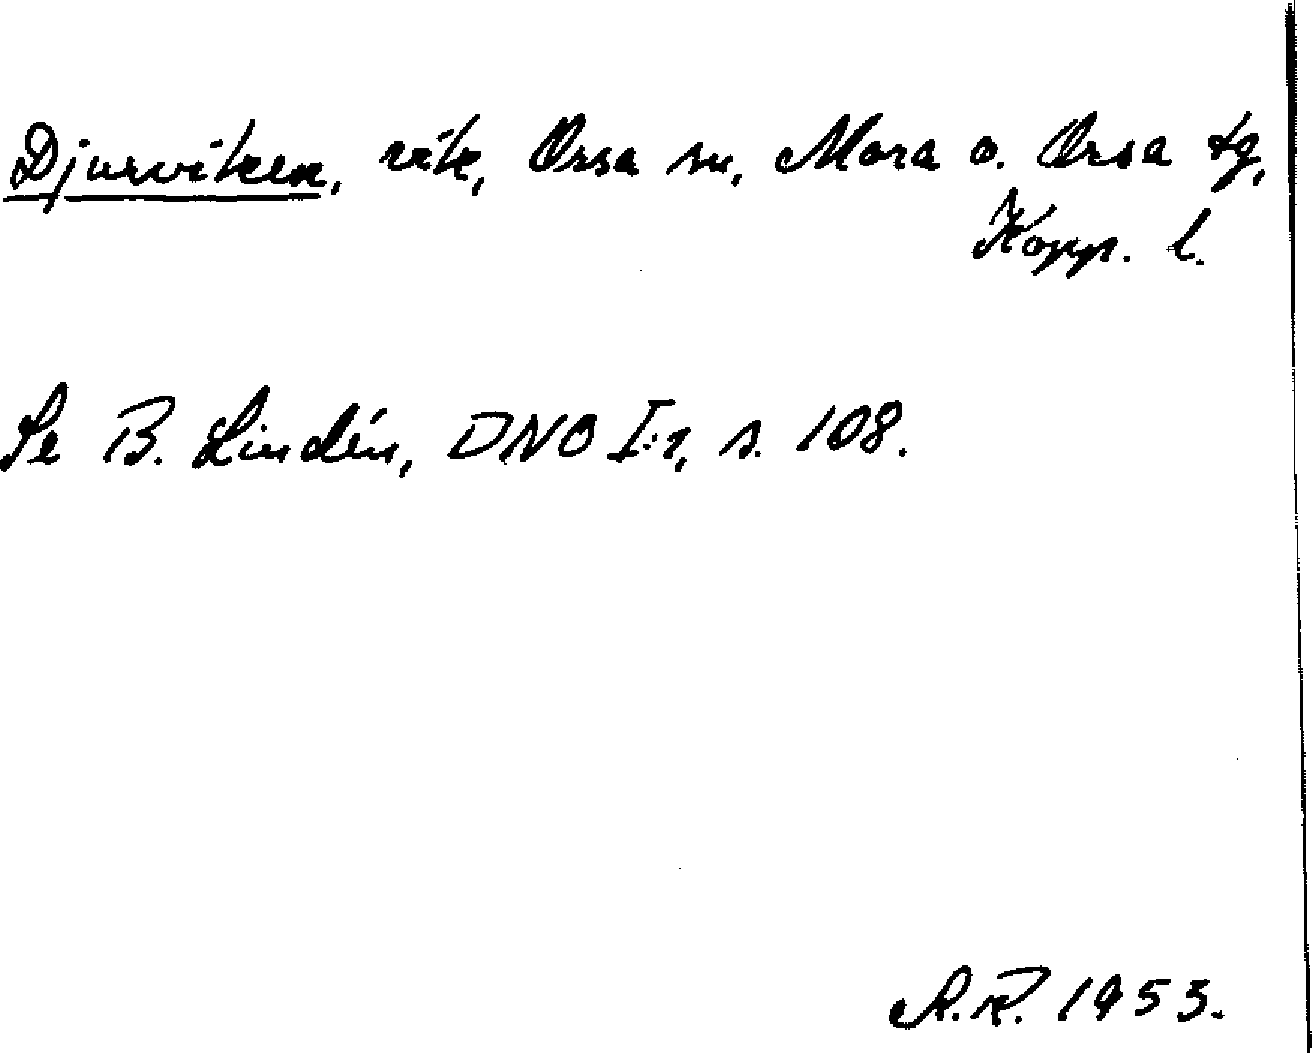 Djurviken, vik, Orsa sn, Mora o. Orsa tg,
Kopp. l.
Se B. Lindén, DNO I:1, s. 108.
A.R. 1953.